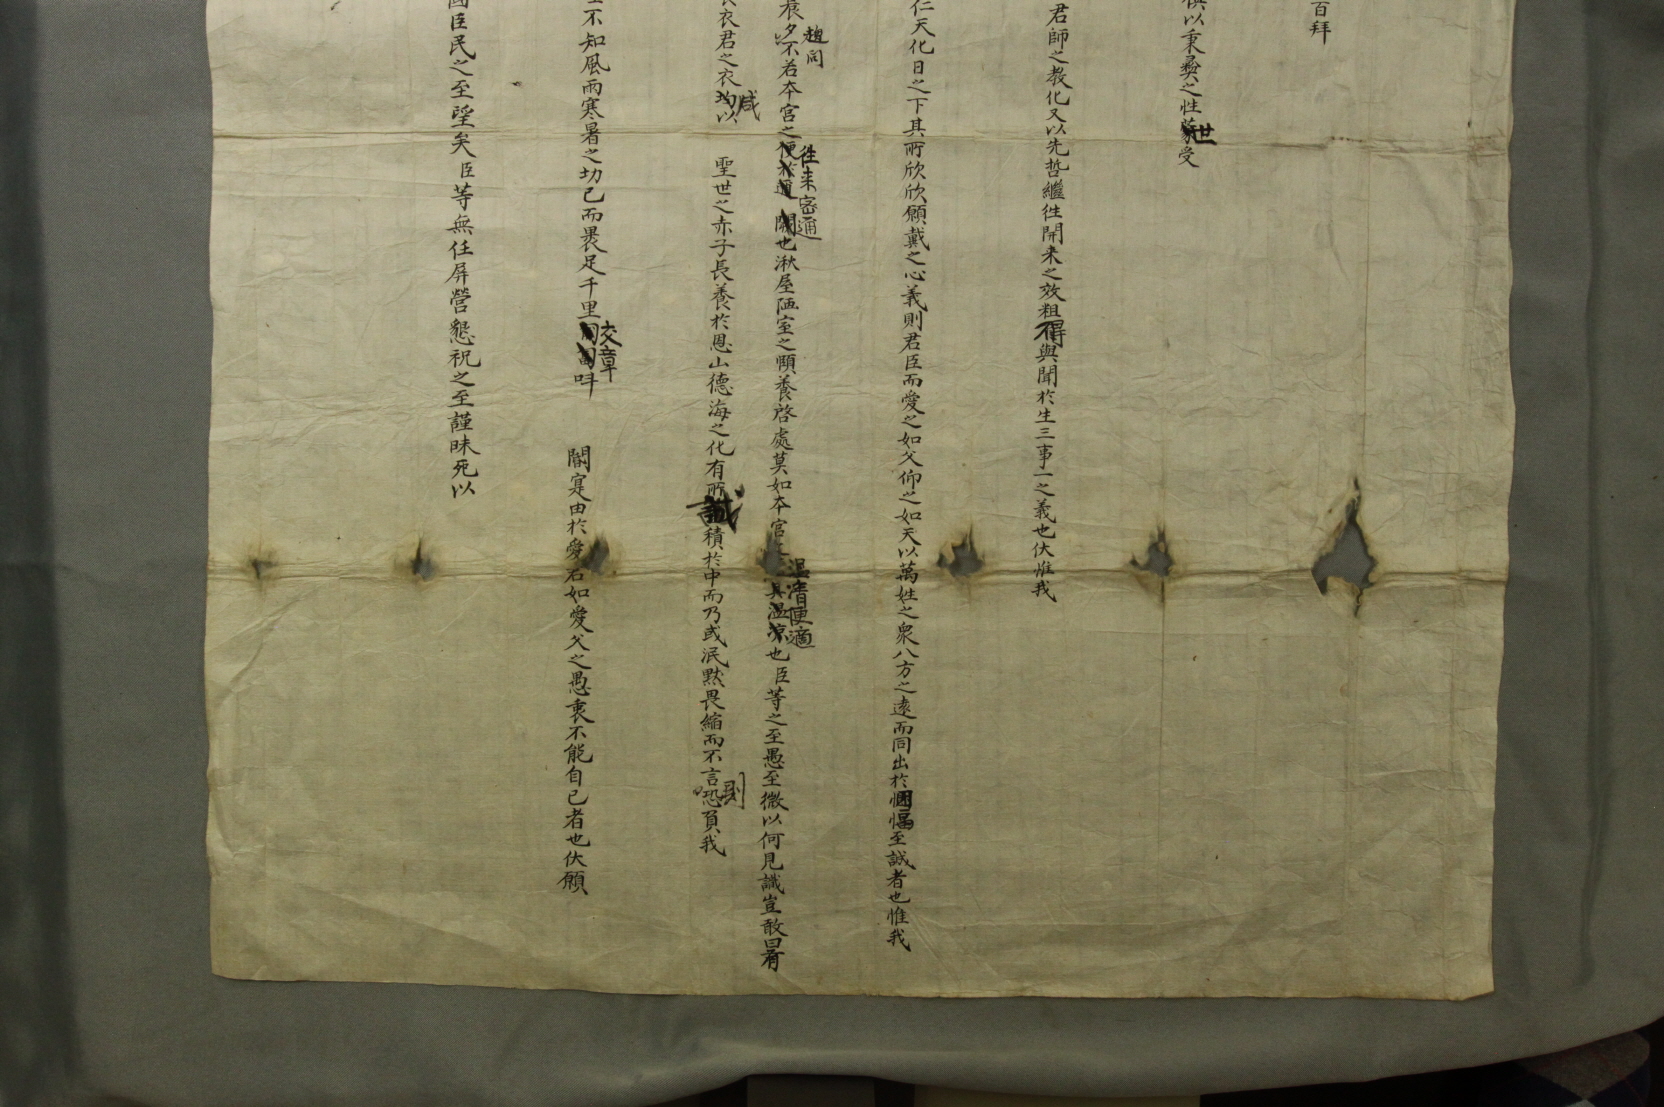 百拜
以秉彝之性世受
君師之敎化又以先哲繼徃開来之效粗得與聞於生三事一之義也伏惟我
仁天化日之下其所欣欣願戴之心義則君臣而愛之如父仰之如天以萬姓之衆八方之遠而同出於悃愊至誠者也惟我
夕不若本宮之便於
也湫屋陋室之頤養啓處莫如本宮
溫涼也臣等之至愚至微以何見識豈敢曰有
趨問
徃来密邇
溫凊便適
衣君之衣均以
咸
聖世之赤子長養於恩山德海之化有所誠積於中而乃或泯默畏縮而不言恐負我
則
不知風雨寒暑之切己而褁足千里
叫
交章
閽寔由於愛君如愛父之愚衷不能自已者也伏願
國臣民之至望矣臣等無任屏營懇祝之至謹昧死以